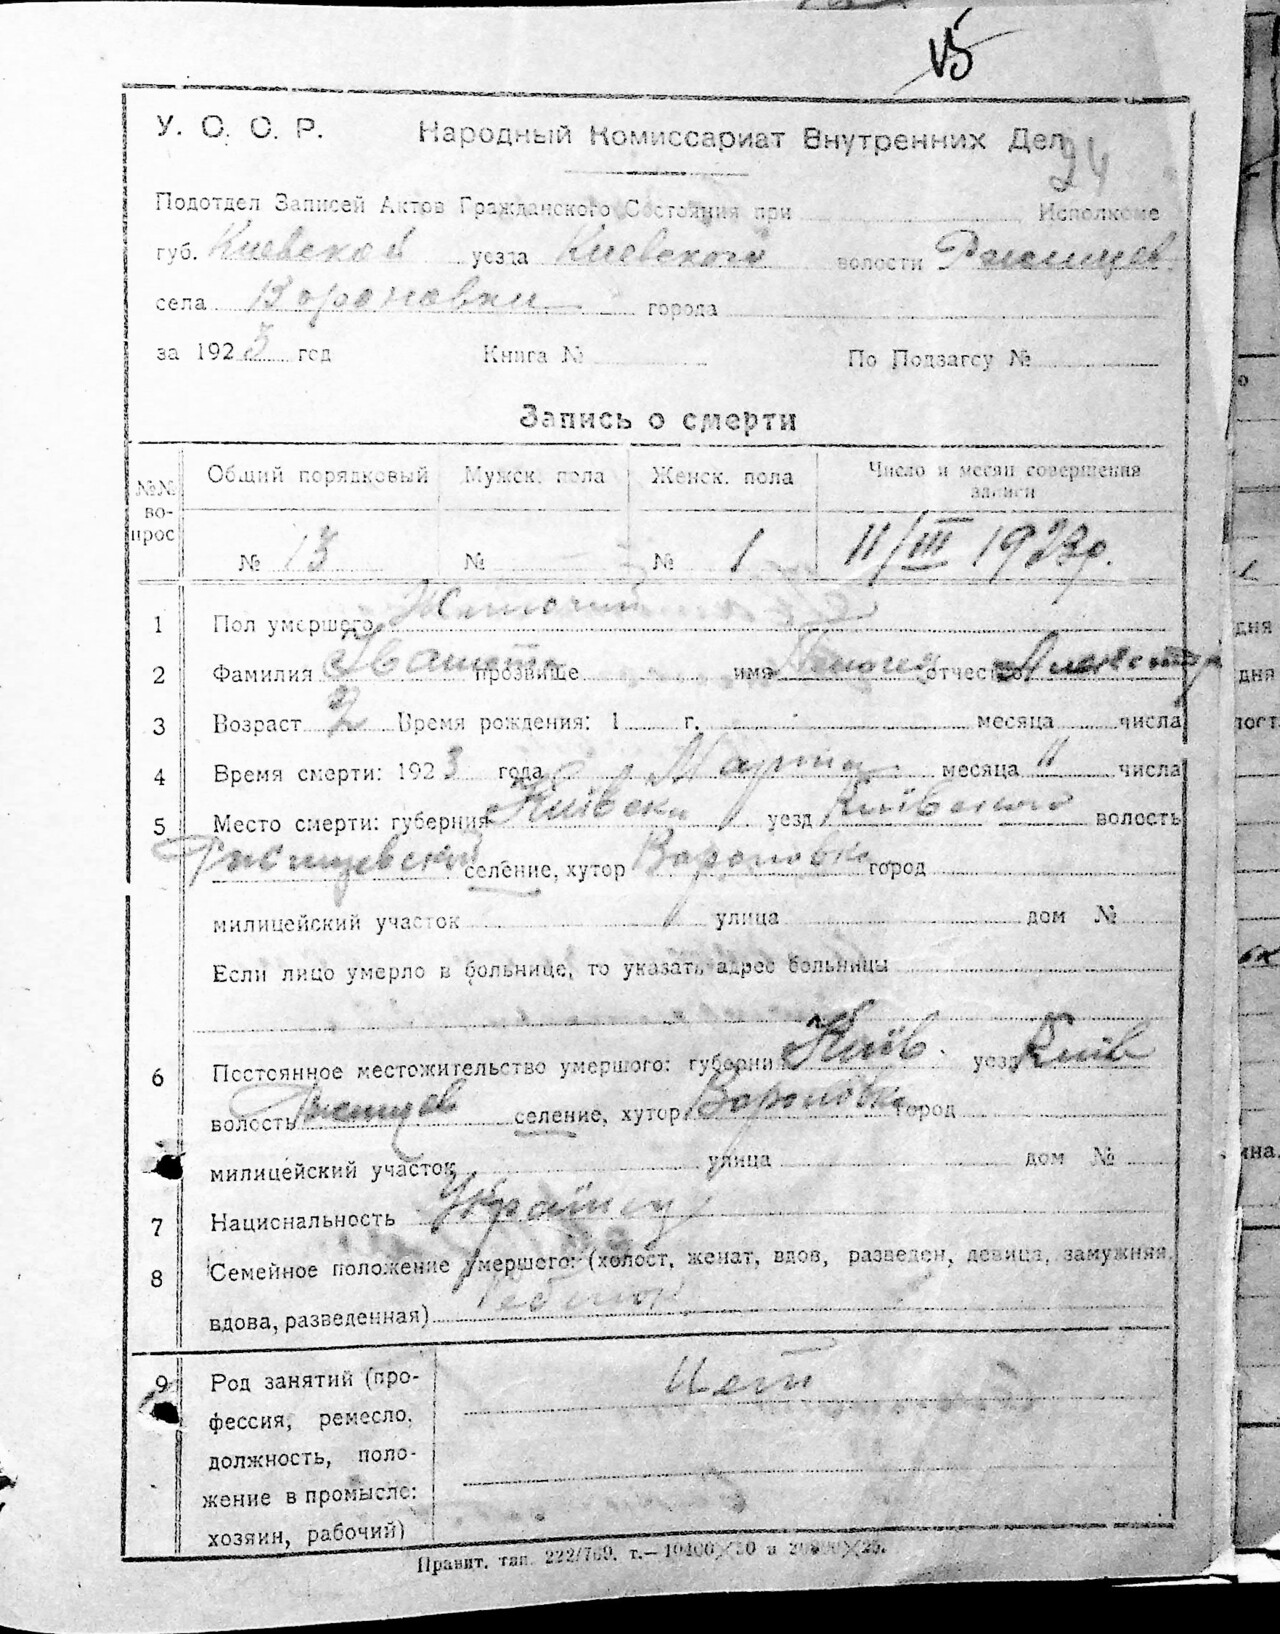 15
У. С. С. Р. Народный Комиссариат Внутренних Дел
24
Подотдел Записей Актов Гражданского Состояния при Исполкоме
губ. Киевской уезда Киевского волости Ржищев.
села Вороновки города
за 1923 год Книга № По Подзагсу №
Запись о смерти
№№ вопрос Общий порядковый Мужск. пола Женск. пола Число и месяц совершения записи
№ 13 № № 1 11/III 1923р.
1 Пол умершего
2 Фамилия прозвище имя отчество
3 Возраст 2 Время рождения: 1 г. месяца числа
4 Время смерти: 1923 года Марта месяца 11 числа
5 Место смерти: губерния Київська уезд Київського волость
Ржищевской селение, хутор Вороновка город
милицейский участок улица дом №
Если лицо умерло в больнице, то указать адрес больницы
6 Постоянное местожительство умершего: губерния Київ. уезд Київ
волость Ржищев селение, хутор Вороновка город
милицейский участок улица дом №
7 Национальность
8 Семейное положение умершего: (холост, женат, вдов, разведен, девица, замужняя,
вдова, разведенная) Ребенок
9 Род занятий (про- Нет
фессия, ремесло,
должность, поло-
жение в промысле:
хозяин, рабочий)
Правит. тип. 222/769. т.—